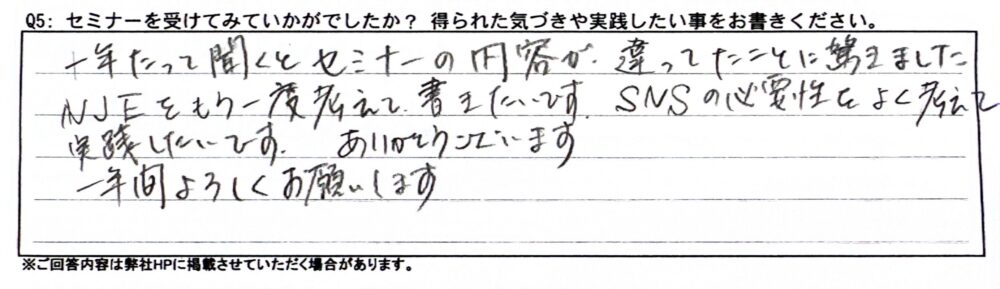 Q5: セミナーを受けてみていかがでしたか? 得られた気づきや実践したい事をお書きください。
一年たって聞くとセミナーの内容が、違ってたことに驚きました
NJEをもう一度考えて、書きたいです。SNSの必要性をよく考えて
実践したいです。 ありがとうございます
一年間よろしくお願いします
※ご回答内容は弊社HPに掲載させていただく場合があります。